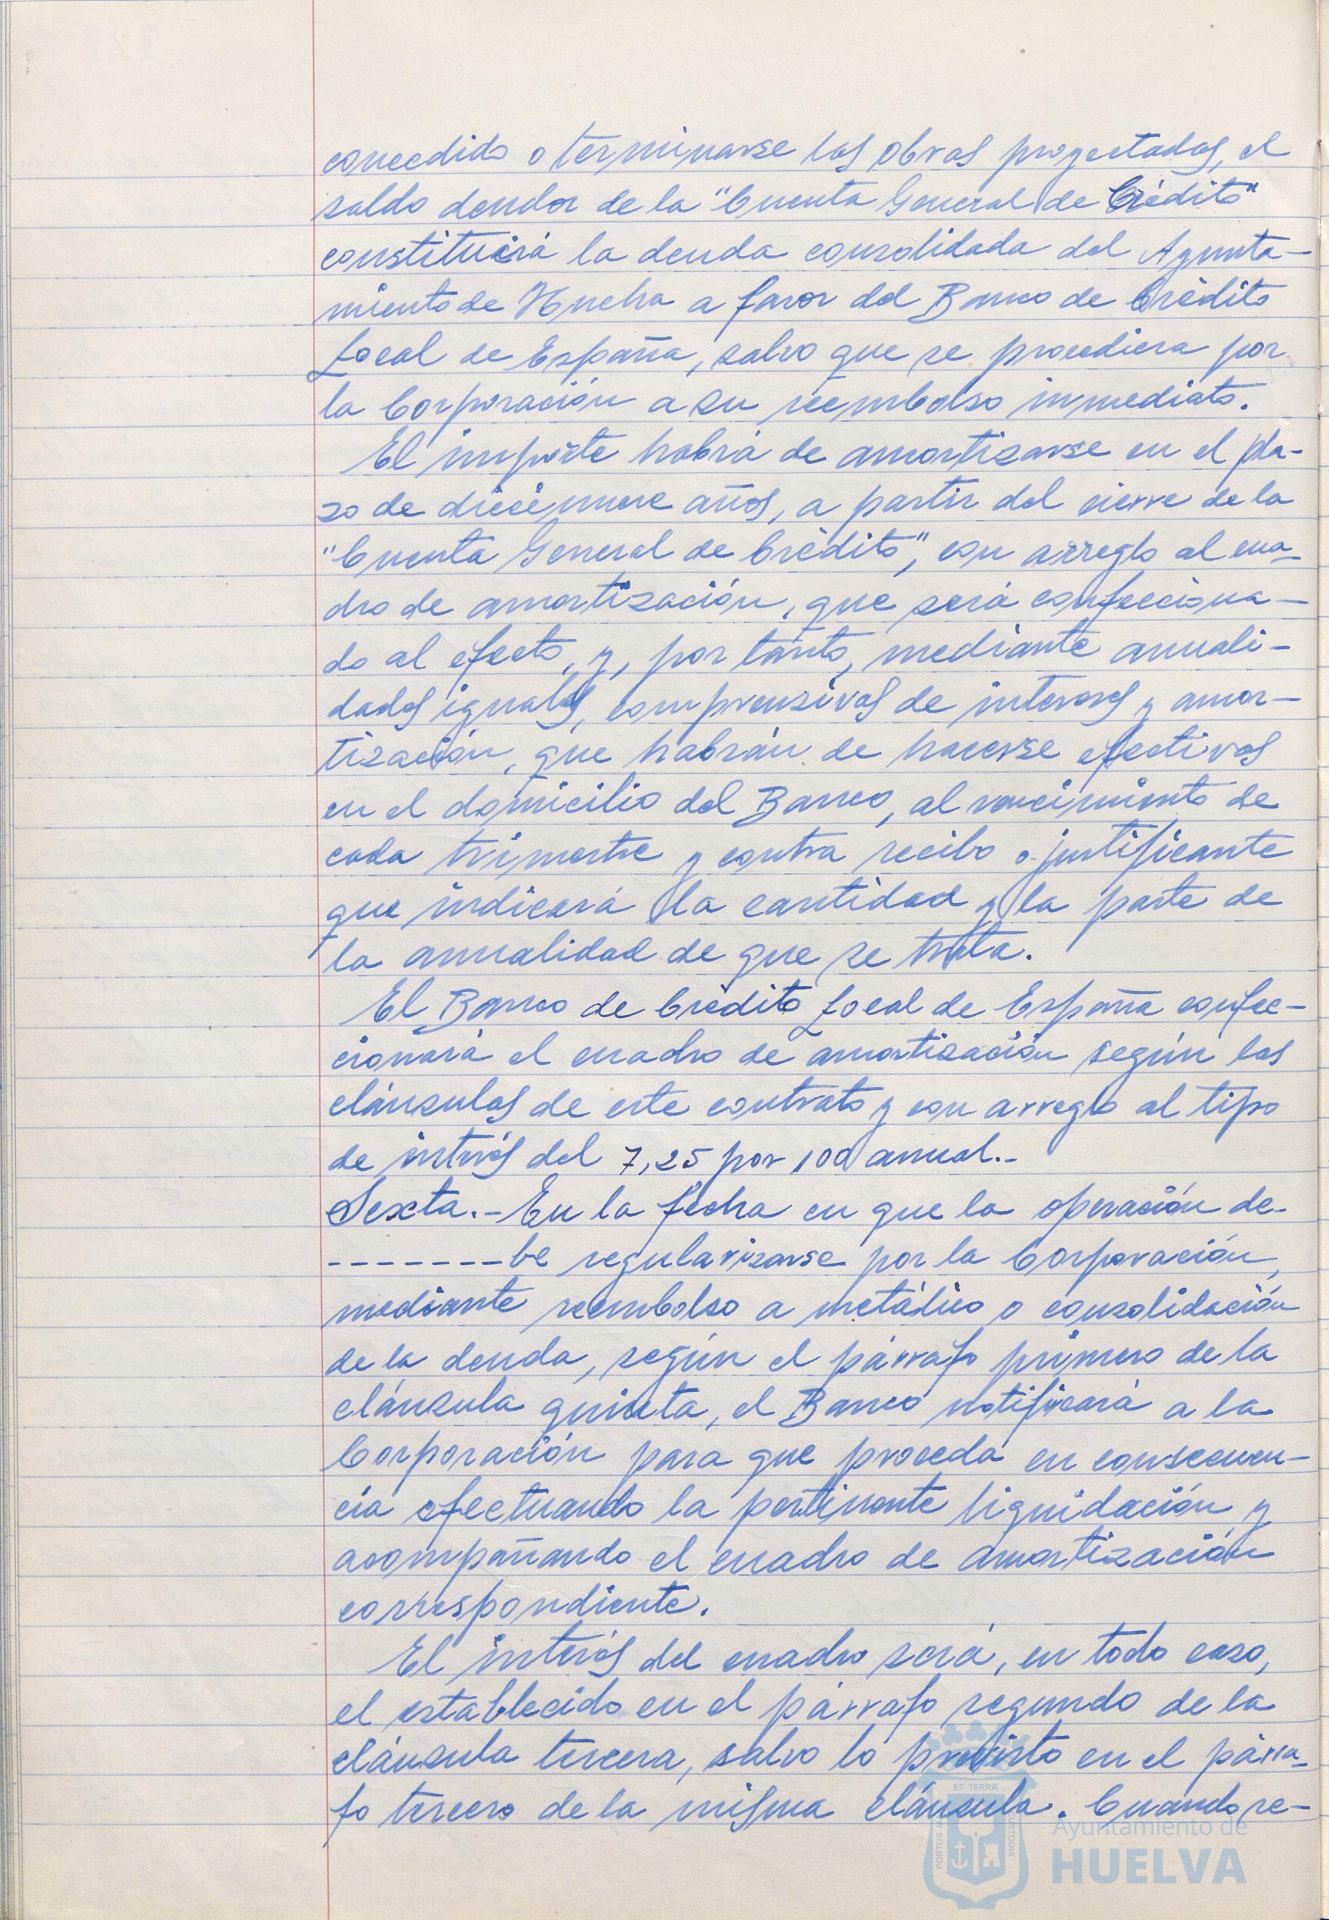 concedido o terminarse las obras proyectadas, el
saldo deudor de la "Cuenta General de Crédito"
constituirá la deuda consolidada del Ayunta-
miento de Huelva a favor del Banco de Crédito
Local de España, salvo que se procediera por
la Corporación a su reembolso inmediato.
El importe habrá de amortizarse en el pla-
zo de diecinueve años, a partir del cierre de la
"Cuenta General de Crédito", con arreglo al cua-
dro de amortización, que será confecciona-
do al efecto, y, por tanto, mediante anuali-
dades iguales, comprensivas de intereses y amor-
tización, que habrán de hacerse efectivas
en el domicilio del Banco, al vencimiento de
cada trimestre y contra recibo o justificante
que indicará la cantidad y la parte de
la anualidad de que se trata.
El Banco de Crédito Local de España confec-
cionará el cuadro de amortización según las
cláusulas de este contrato y con arreglo al tipo
de interés del 7,25 por 100 anual.-
Sexta.- En la fecha en que la operación de-
-------be regularizarse por la Corporación,
mediante reembolso a metálico o consolidación
de la deuda, según el párrafo primero de la
cláusula quinta, el Banco notificará a la
Corporación para que proceda en consecuen-
cia efectuando la pertinente liquidación y
acompañando el cuadro de amortización
correspondiente.
El interés del cuadro será, en todo caso,
el establecido en el párrafo segundo de la
cláusula tercera, salvo lo previsto en el párra-
fo tercero de la misma cláusula. Cuando re-
ET TERRAE
PORTUS MARIS
CUSTODIA
Ayuntamiento de
HUELVA